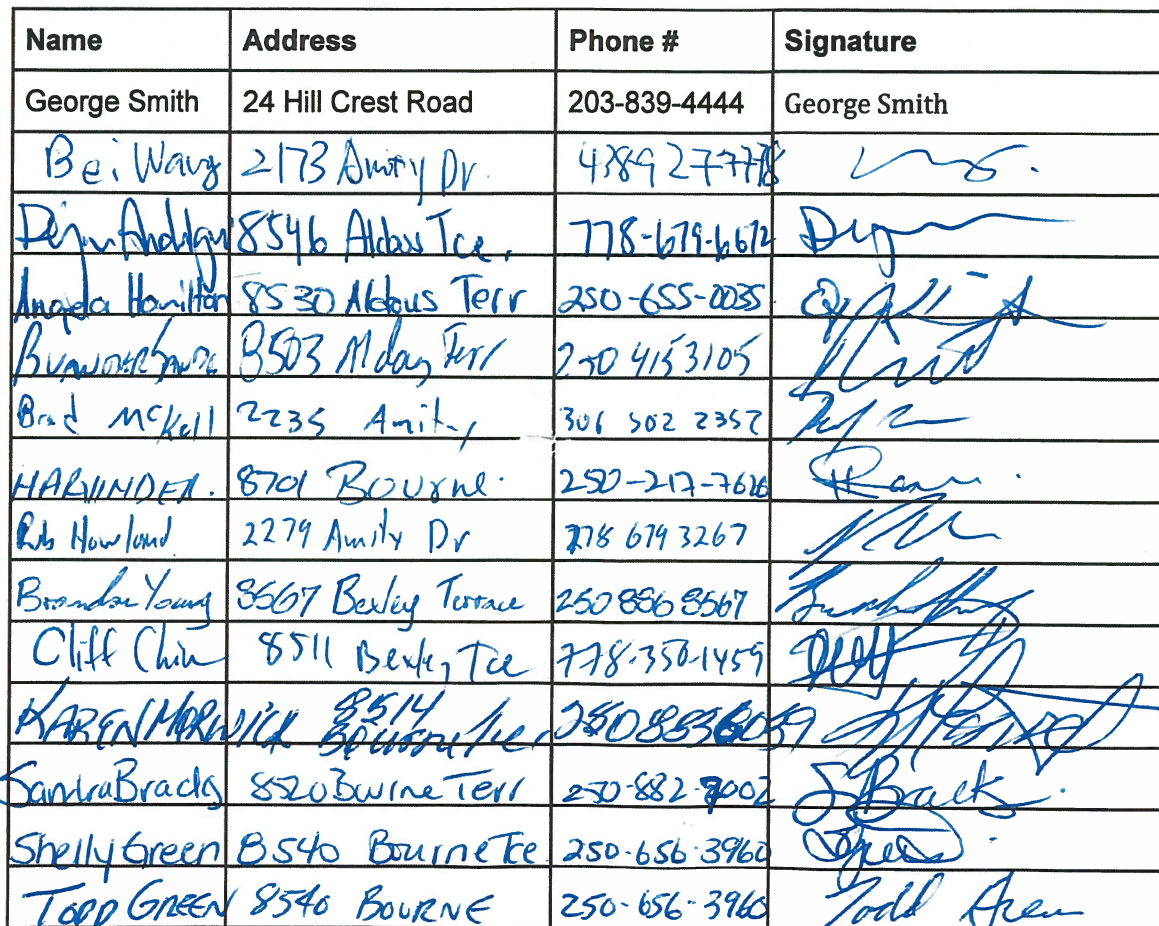 Name Address Phone # Signature
George Smith 24 Hill Crest Road 203-839-4444 George Smith
Bei Wang 2173 Amity Dr. 4389277778
8546 Aldous Tce. 778-679-6672
Angela Hamilton 8530 Aldous Terr 250-655-0035
8503 Aldous Terr 250 415 3105
Brad McKell 2235 Amity 306 502 2352
HARVINDER. 8701 BOURNE. 250-217-7626
Rob Howland 2279 Amity Dr 778 679 3267
Brandon Young 8567 Bexley Terrace 250 886 8567
Cliff Chin 8511 Bexley Tce 778-350-1459
KAREN MORWICK 8514 Bourne Ter
Sandra Brack 8520 Bourne Terr 250-882-9002 S Brack
Shelly Green 8540 Bourne Tce 250-656-3960
TODD GREEN 8540 BOURNE 250-656-3960 Todd Green